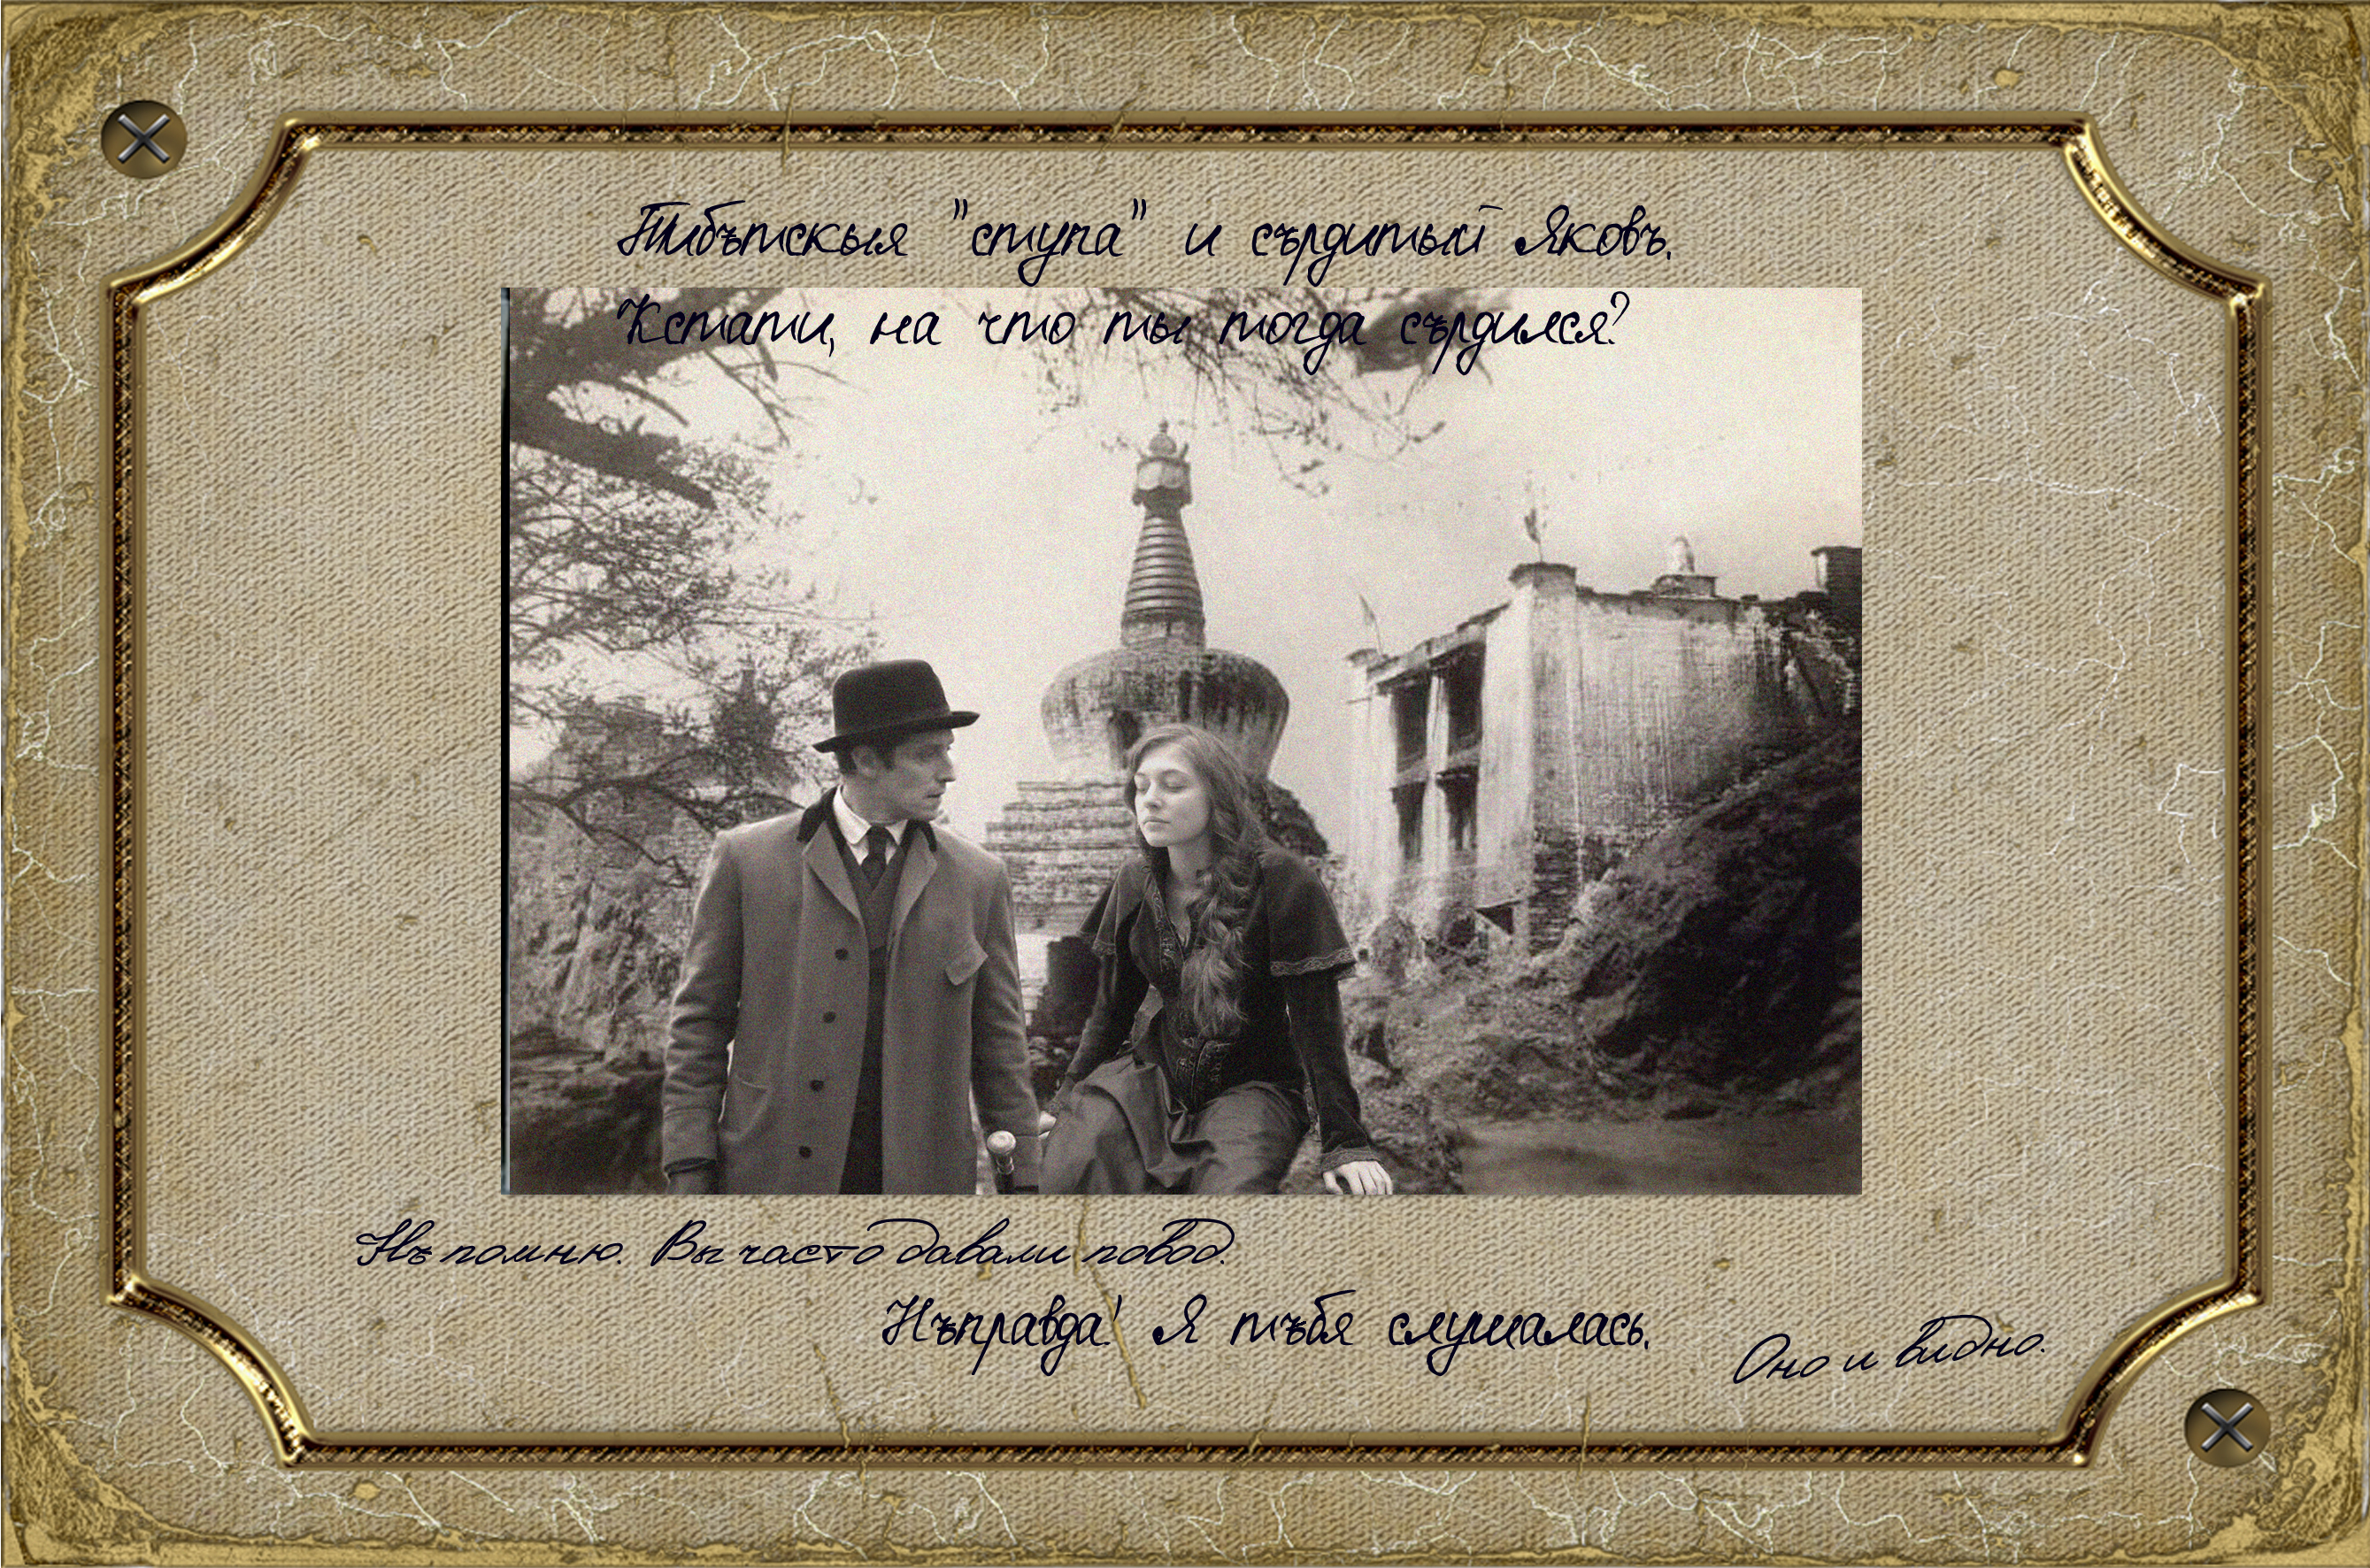 Тибътскыя "ступа" и сърдитый Яковъ.
Кстати, на что ты тогда сърдился?
Нъ помню. Вы часто давали повод.
Нъправда! Я тъбя слушалась.
Оно и видно.